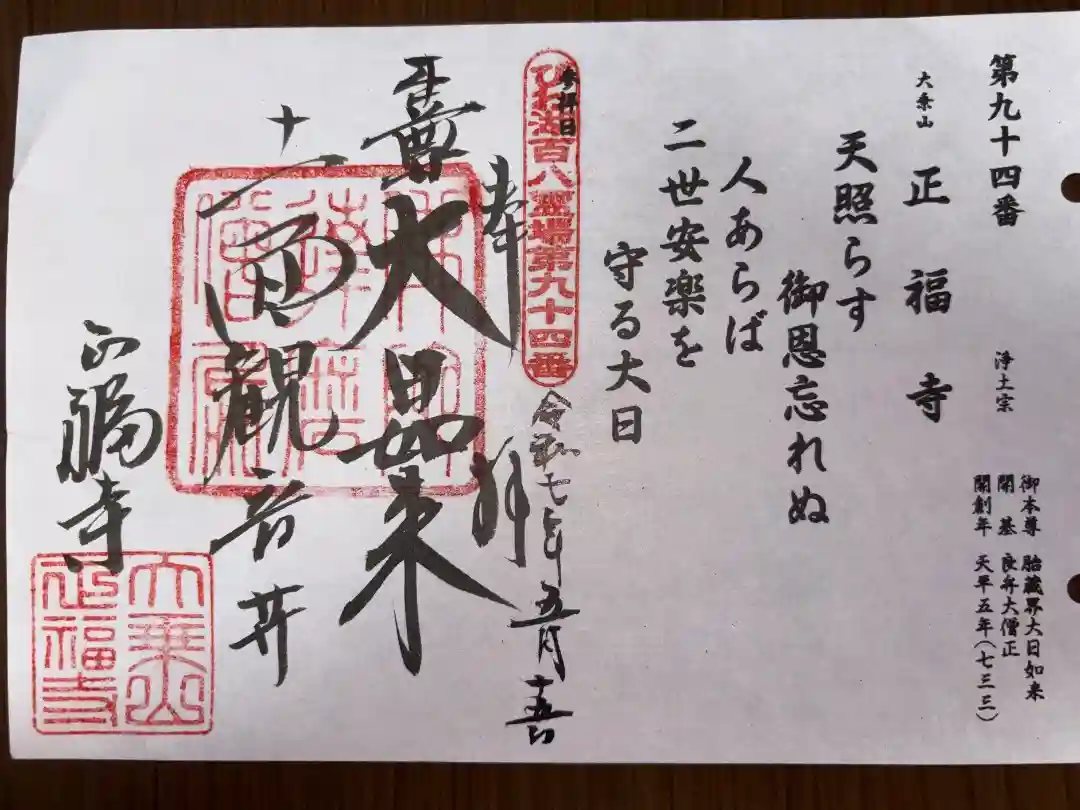 第九十四番
大乗山 正福寺 浄土宗
御本尊 胎蔵界大日如来
開基 良弁大僧正
開創年 天平五年(七三三)
天照らす
御恩忘れぬ
人あらば
二世安楽を
守る大日
参拝日
びわ湖百八霊場第九十四番
令和七年五月十五日
奉拝
大日如来
十一面観音井
正福寺
大乗山
正福寺